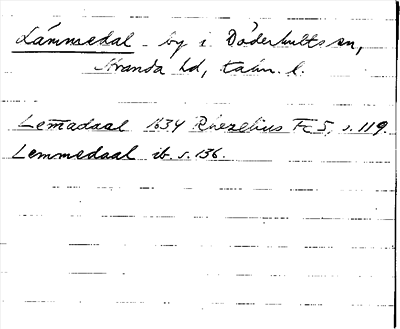 Lämmedal - by i Döderhults sn,
Stranda hd, Kalm. l.
Lem̅adaal 1634 Rhezelius Fc5, s. 119.
Lemmedaal ib. s. 136.